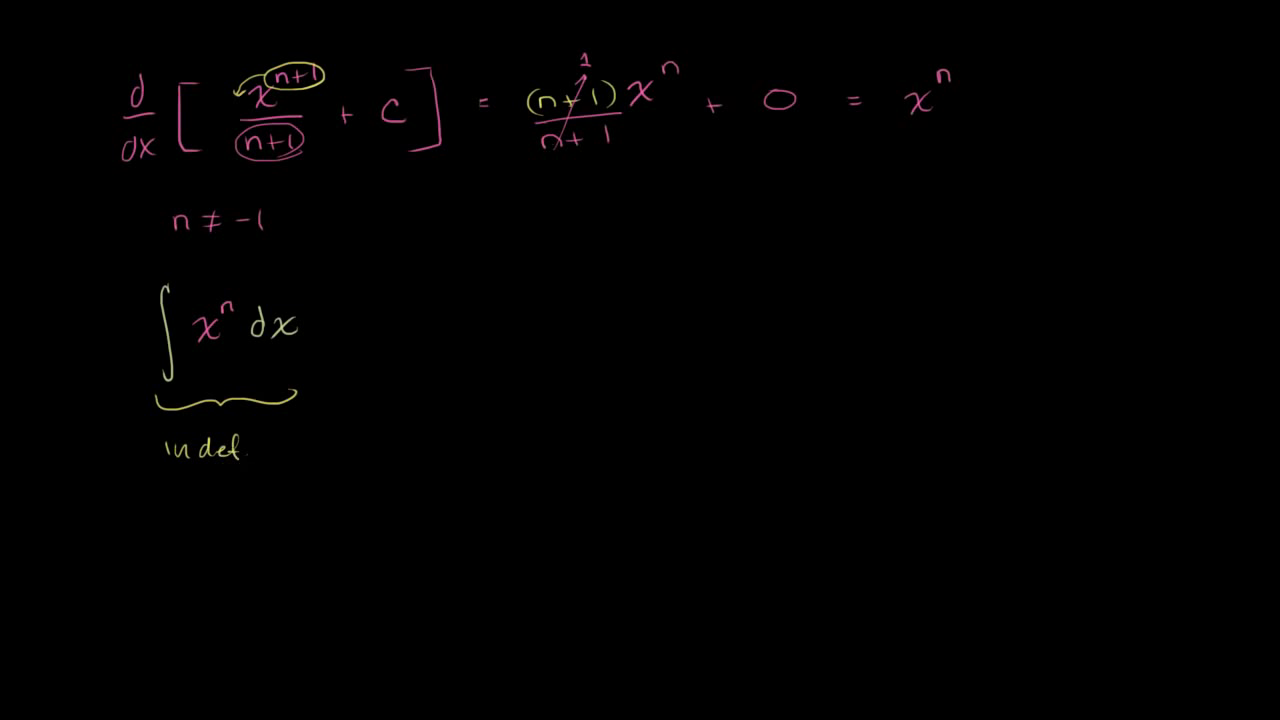 d/dx [ x^(n+1)/(n+1) + C ] = (n+1)x^n/(n+1) 1 + 0 = x^n
n ≠ -1
∫ x^n dx
indef.